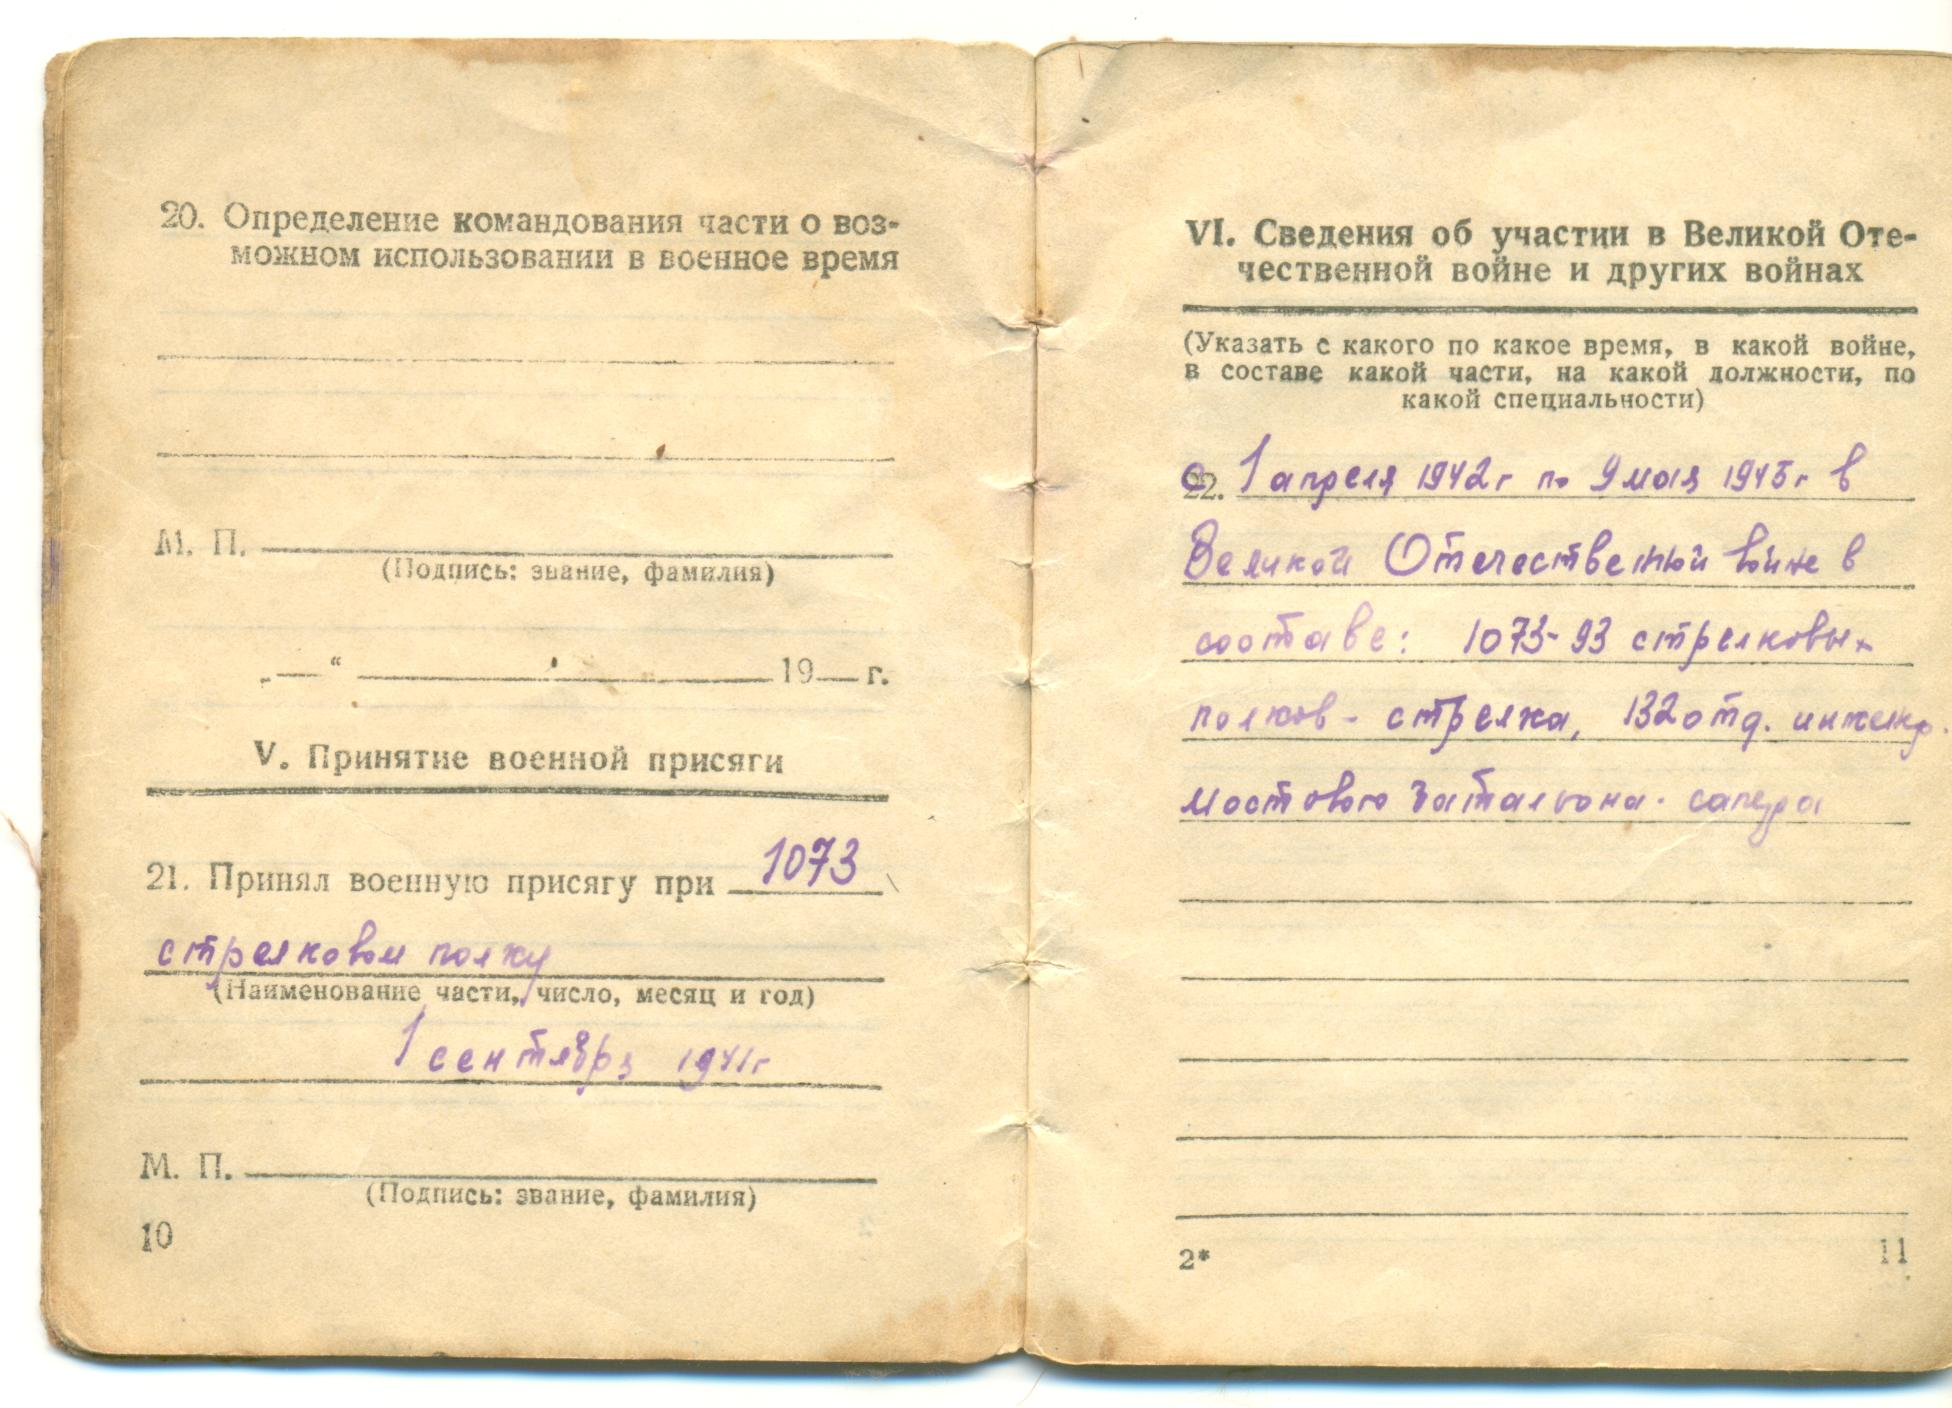 20. Определение командования части о воз-
можном использовании в военное время
М. П.
(Подпись: звание, фамилия)
„ “ 19 г.
V. Принятие военной присяги
21. Принял военную присягу при 1073
стрелковом полку
(Наименование части, число, месяц и год)
1 сентября 1941г
М. П.
(Подпись: звание, фамилия)
10
VI. Сведения об участии в Великой Оте-
чественной войне и других войнах
(Указать с какого по какое время, в какой войне,
в составе какой части, на какой должности, по
какой специальности)
22. С 1 апреля 1942г по 9 мая 1945г в
Великой Отечественной войне в
составе: 1073-93 стрелковых
полков - стрелка, 132 отд. инженр.
мостового батальона - сапера
2*
11